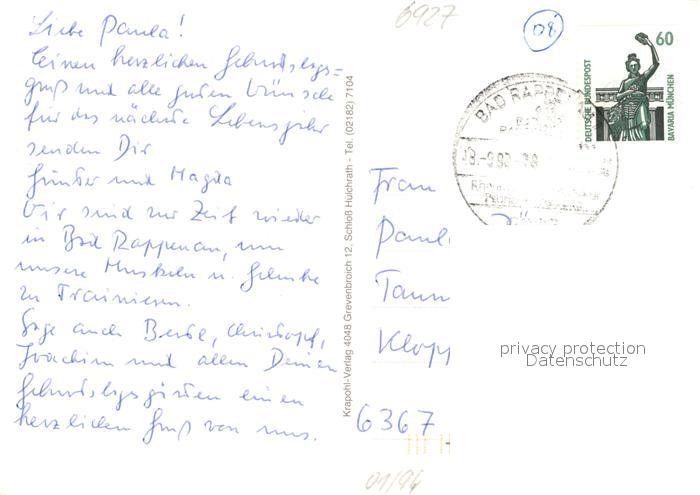 Liebe Paula!
Einen herzlichen Geburtstags=
gruß und alle guten Wünsche
für das nächste Lebensjahr
senden Dir
Günter und Magda
Wir sind zur Zeit wieder
in Bad Rappenau, um
unsere Muskeln u. Gelenke
zu Trainieren.
Sage auch Bernd, Christoph,
Joachim und allen Deinen
Geburtstagsgästen einen
herzlichen Gruß von uns.
Krapohl-Verlag 4048 Grevenbroich 12, Schloß Hülchrath - Tel. (02182) 7104
6927
08
60
DEUTSCHE BUNDESPOST
BAVARIA MÜNCHEN
BAD RAPPE
Frau
Paul
Taun
Klopp
6367
01/94
privacy protection
Datenschutz